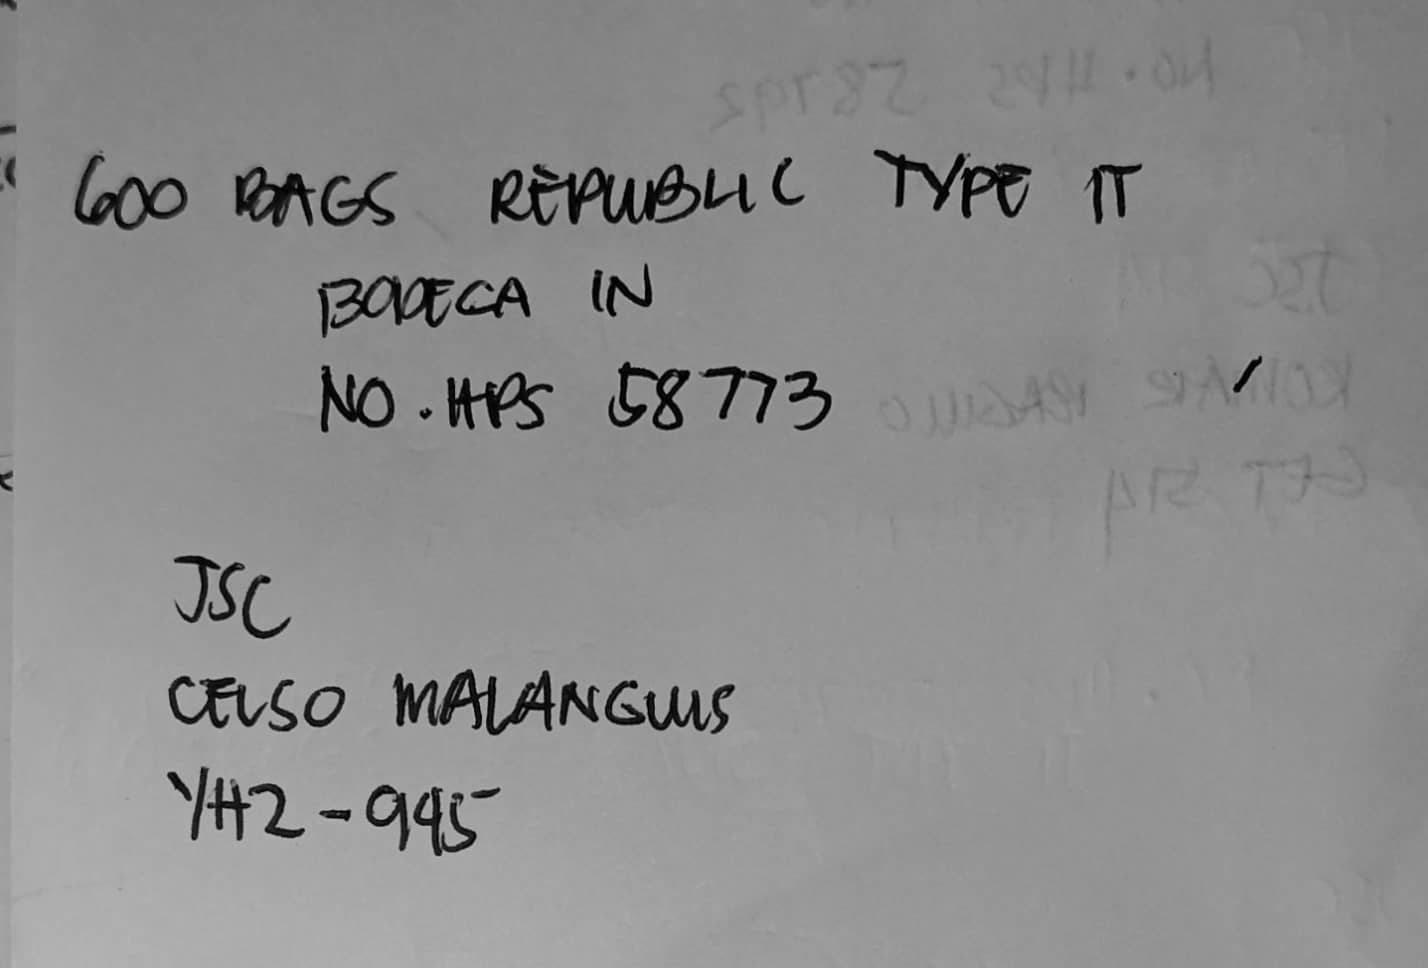 600 BAGS REPUBLIC TYPE 1T
BODEGA IN
NO. HPS 58773
JSC
CELSO MALANGUIS
YHZ-945